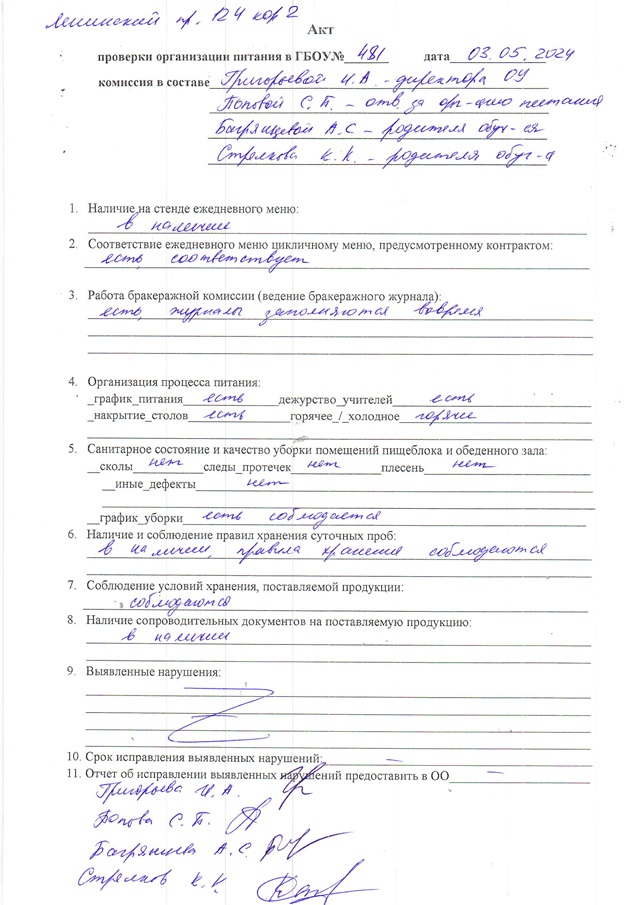 Ленинский пр. 124 кор 2
Акт
проверки организации питания в ГБОУ№ 481 дата 03.05.2024
комиссия в составе Григорьевой И.А - директора ОУ
Поповой С.П. – отв. за орг-цию питания
Багрянцевой А.С – родителя обуч-ся
Стрелкова К.К. - родителя обуч-а
1. Наличие на стенде ежедневного меню:
в наличие
2. Соответствие ежедневного меню цикличному меню, предусмотренному контрактом:
есть, соответствует
3. Работа бракеражной комиссии (ведение бракеражного журнала):
есть, журналы заполняются вовремя
4. Организация процесса питания:
_график_питания есть дежурство_учителей есть
_накрытие_столов есть горячее_/_холодное горячее
5. Санитарное состояние и качество уборки помещений пищеблока и обеденного зала:
__сколы нет следы_протечек нет плесень нет
__иные_дефекты нет
__график_уборки есть соблюдается
6. Наличие и соблюдение правил хранения суточных проб:
в наличии, правила хранения соблюдаются
7. Соблюдение условий хранения, поставляемой продукции:
соблюдаются
8. Наличие сопроводительных документов на поставляемую продукцию:
в наличии
9. Выявленные нарушения:
10. Срок исправления выявленных нарушений: –
11. Отчет об исправлении выявленных нарушений предоставить в ОО –
Григорьева И.А.
Попова С.П.
Багрянцева А.С.
Стрелков К.К.